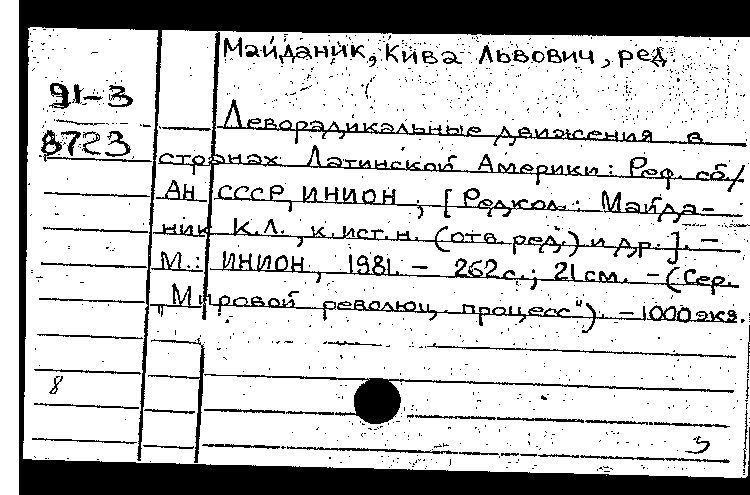 Майданик, Кива Львович, ред.
91-3
8723
Леворадикальные движения в
странах Латинской Америки: Реф. сб./
АН СССР, ИНИОН; [Редкол.: Майда-
ник К.Л., к.ист.н. (отв. ред.) и др.]. -
М.: ИНИОН, 1981. - 262 с.; 21 см. - (Сер.
„Мировой революц. процесс"). - 1000 экз.
8
3